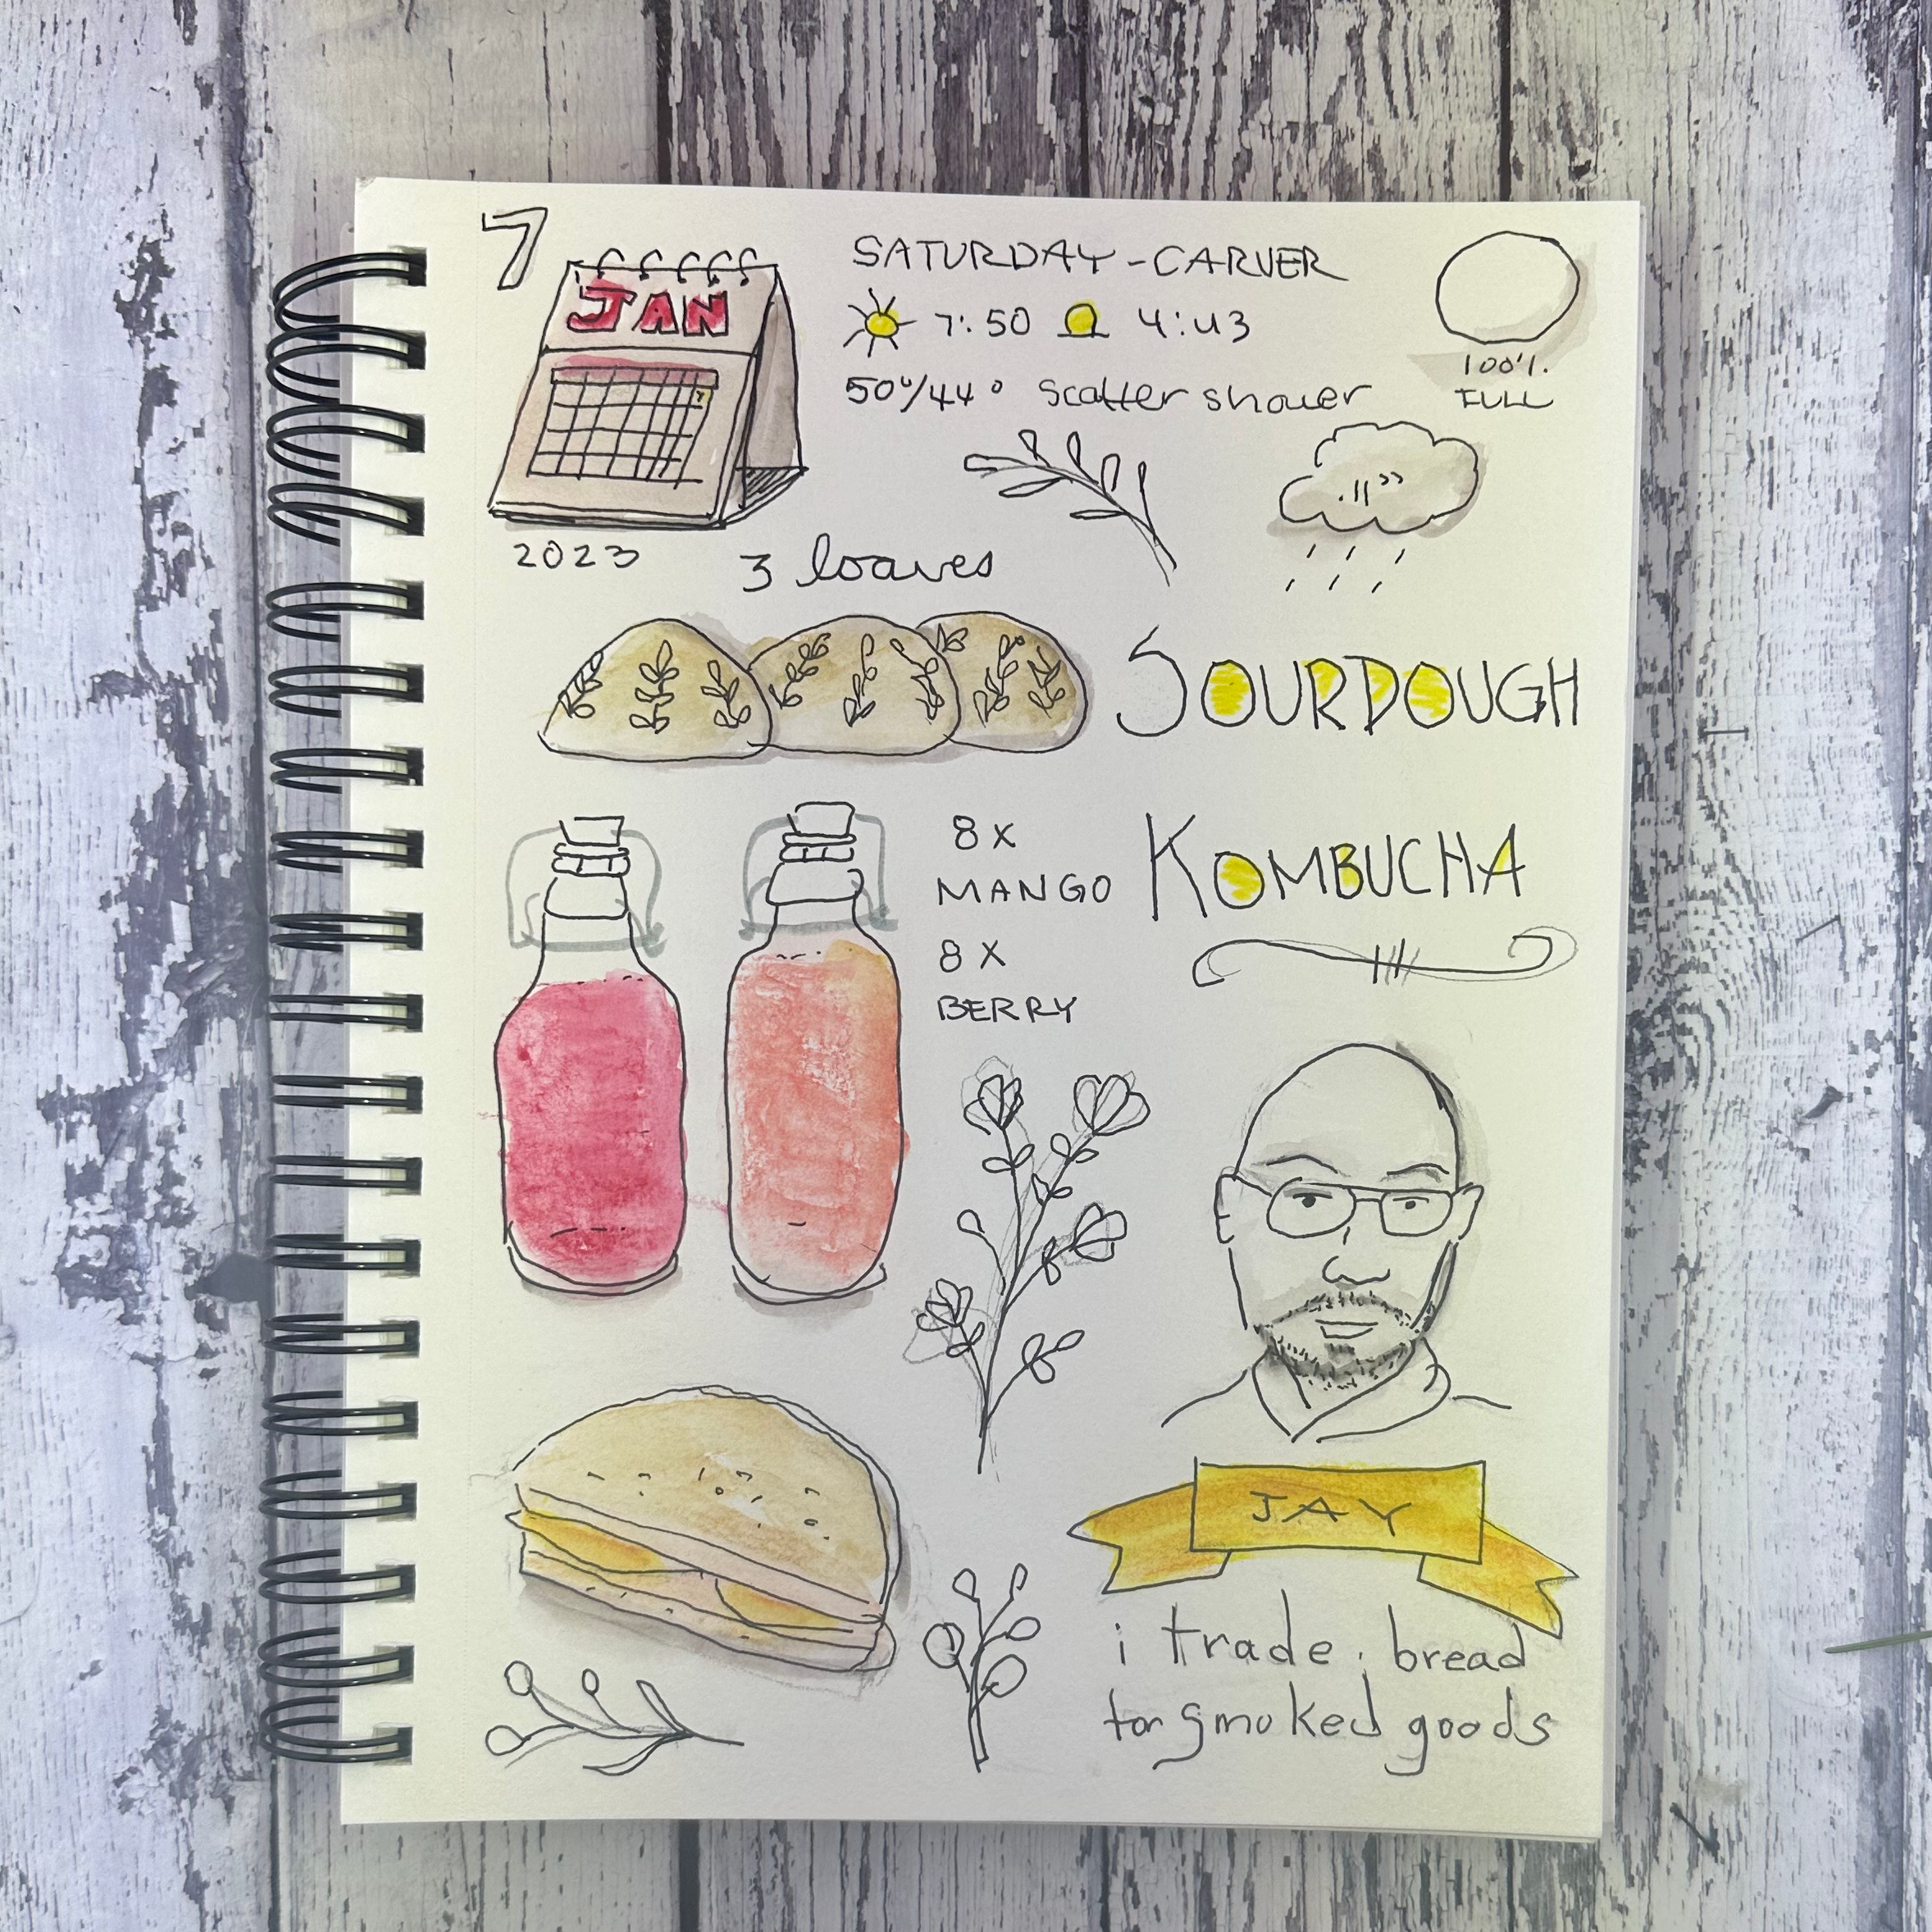 7
JAN
7
2023
SATURDAY - CARVER
7:50 4:43
50°/44° scatter shower
100%
FULL
.11"
3 loaves
SOURDOUGH
8 x
MANGO
8 x
BERRY
KOMBUCHA
JAY
i trade bread
for smoked goods